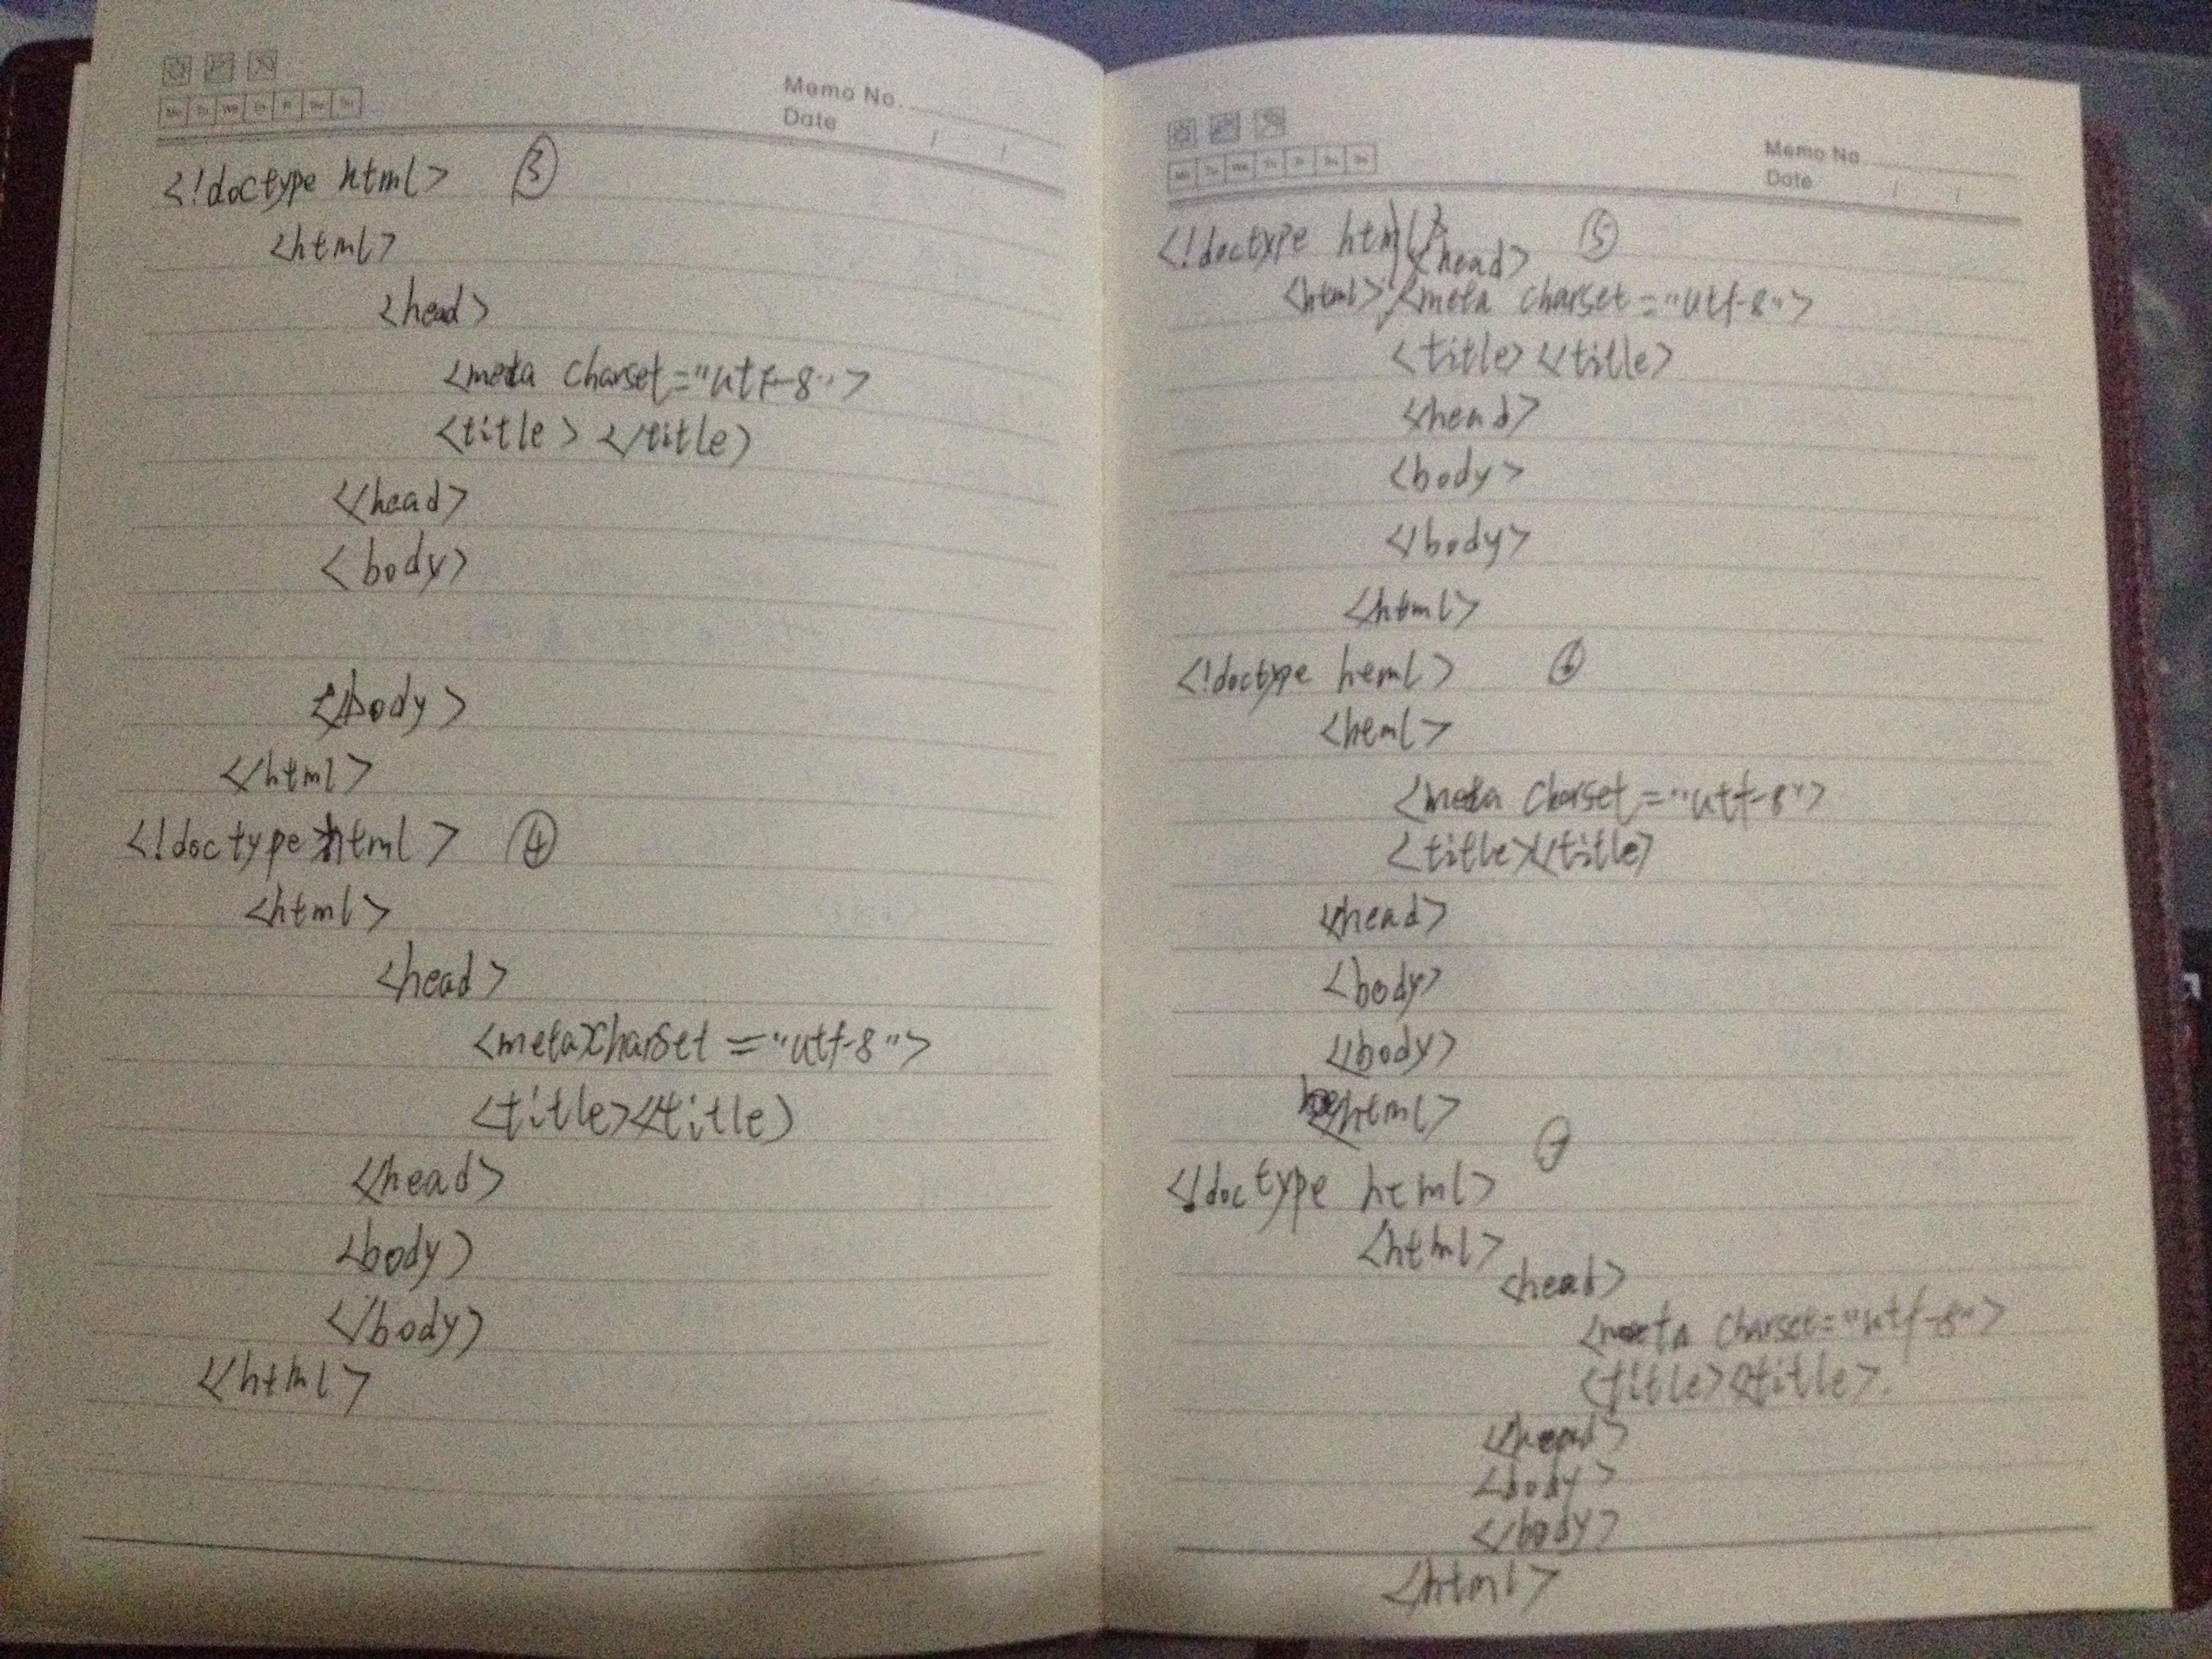 Memo No.
Date / /
<!doctype html> ③
<html>
<head>
<meta charset="utf-8">
<title> </title>
</head>
<body>
</body>
</html>
<!doctype html> ④
<html>
<head>
<meta charset="utf-8">
<title></title>
</head>
<body>
</body>
</html>
Mo Tu We Th Fr Sa Su
Memo No.
Date / /
<!doctype html> ⑤
<head>
<html> <meta charset="utf-8">
<title></title>
</head>
<body>
</body>
</html>
<!doctype heml> ⑥
<heml>
<meta charset="utf-8">
<title></title>
</head>
<body>
</body>
</html>
⑦
<!doctype html>
<html>
<head>
<meta charset="utf-8">
<title></title>.
</head>
<body>
</body>
</html>